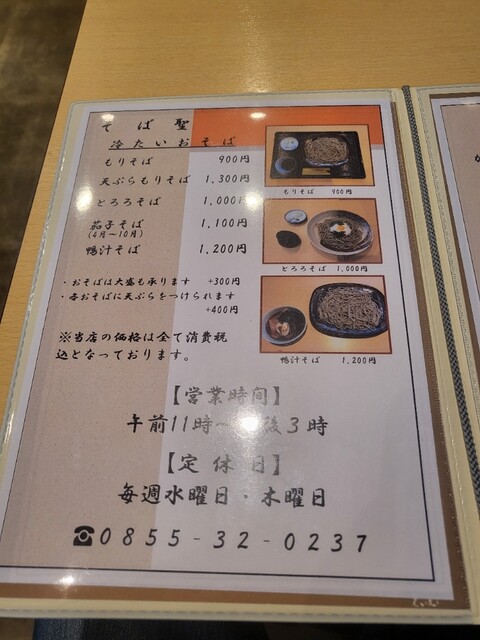 そば聖
冷たいおそば
もりそば 900円
天ぷらもりそば 1,300円
とろろそば 1,000円
茄子そば 1,100円
(4月～10月)
鴨汁そば 1,200円
・おそばは大盛も承ります +300円
・各おそばに天ぷらをつけられます
+400円
※当店の価格は全て消費税
込となっております。
もりそば 900円
とろろそば 1,000円
鴨汁そば 1,200円
【営業時間】
午前11時～午後3時
【定休日】
毎週水曜日・木曜日
☎0855-32-0237